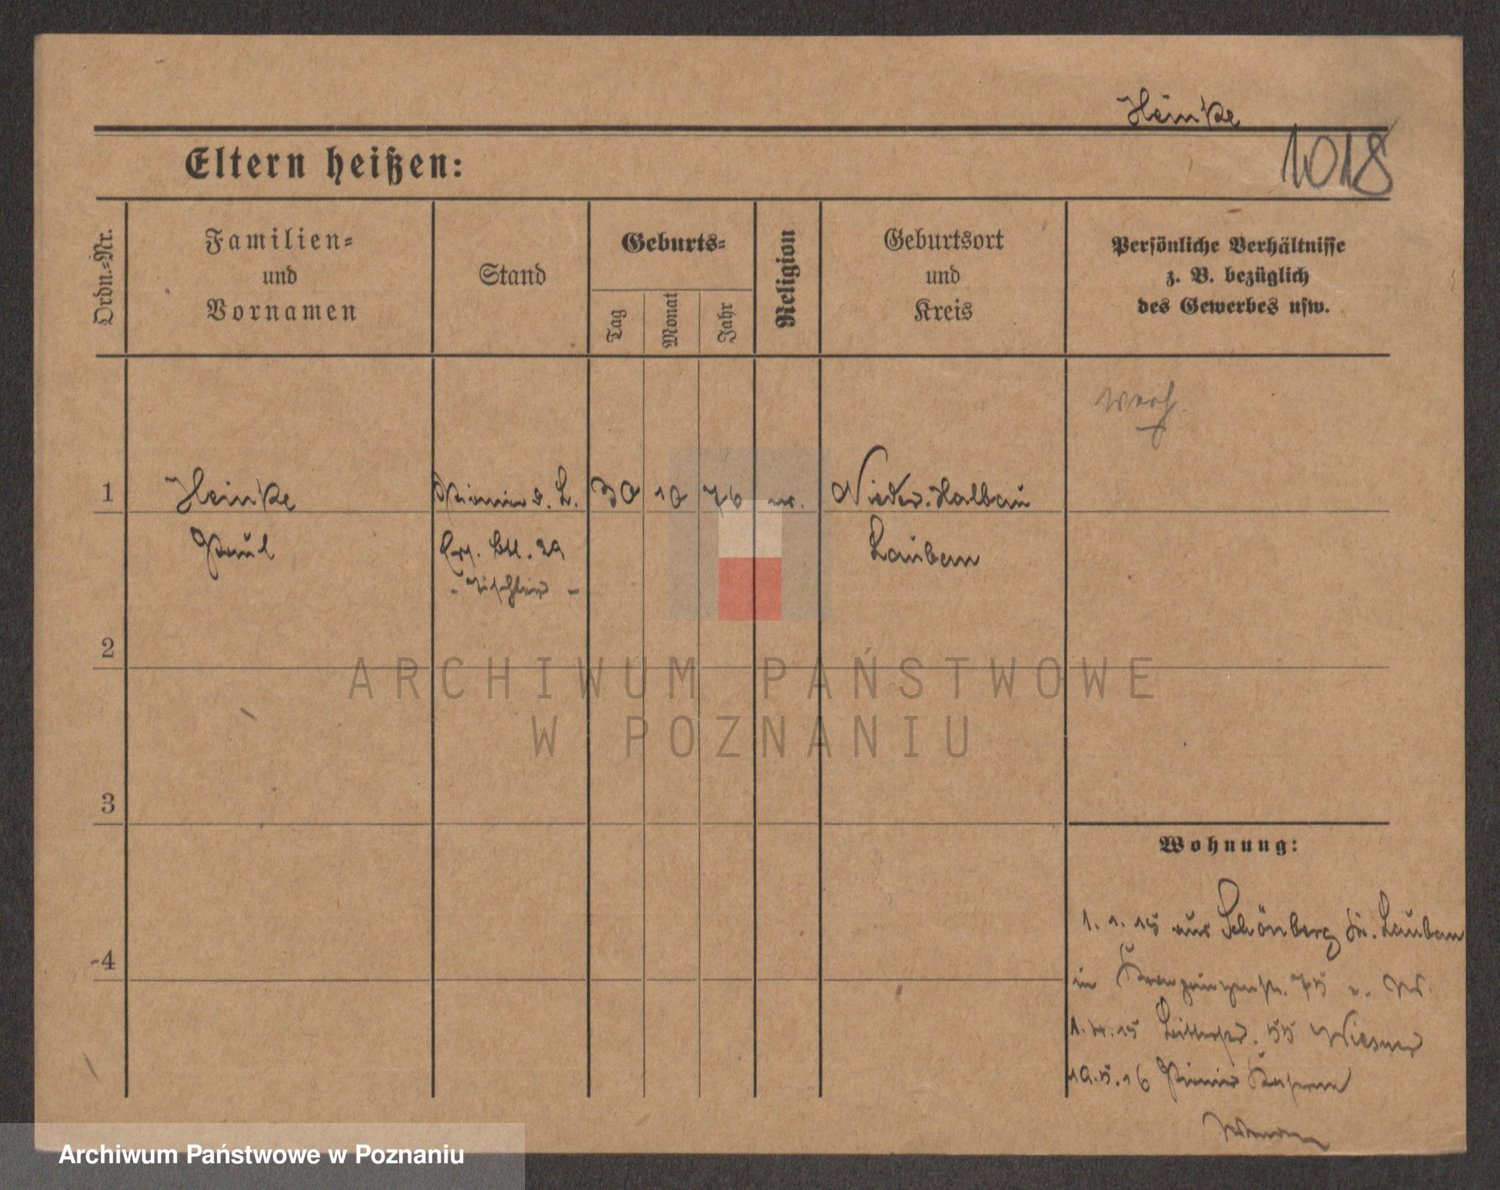 Heinke
1018
Eltern heißen:
Ordn.=Nr.
Familien=
und
Vornamen
Stand
Geburts=
Tag
Monat
Jahr
Religion
Geburtsort
und
Kreis
Persönliche Verhältnisse
z. B. bezüglich
des Gewerbes usw.
1
Heinke
Paul
Pionier d. L.
Ers. Btl. 29
- Tischler -
30
10
76
ev.
Nieder. Halbau
Lauban
2
3
4
Wohnung:
1. 1. 15 aus Schönberg Kr. Lauban
in Kronprinzenstr. 75
15 55 Wiesner
10.5.16 Pionier Kaserne
ARCHIWUM PAŃSTWOWE
W POZNANIU
Archiwum Państwowe w Poznaniu